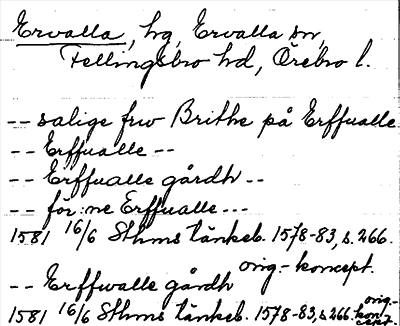 Ervalla, hg, Ervalla sn,
Fellingsbro hd, Örebro l.
-- salige frw Brithe på Erffualle
-- Erffualle --
-- Erffualle gårdh --
-- för:ne Erffualle ---
1581 16/6 Sthms tänkeb. 1578-83, s. 266.
orig.- koncept.
-- Erffwalle gårdh
1581 16/6 Sthms tänkeb. 1578-83, s. 266. orig.- koncept.